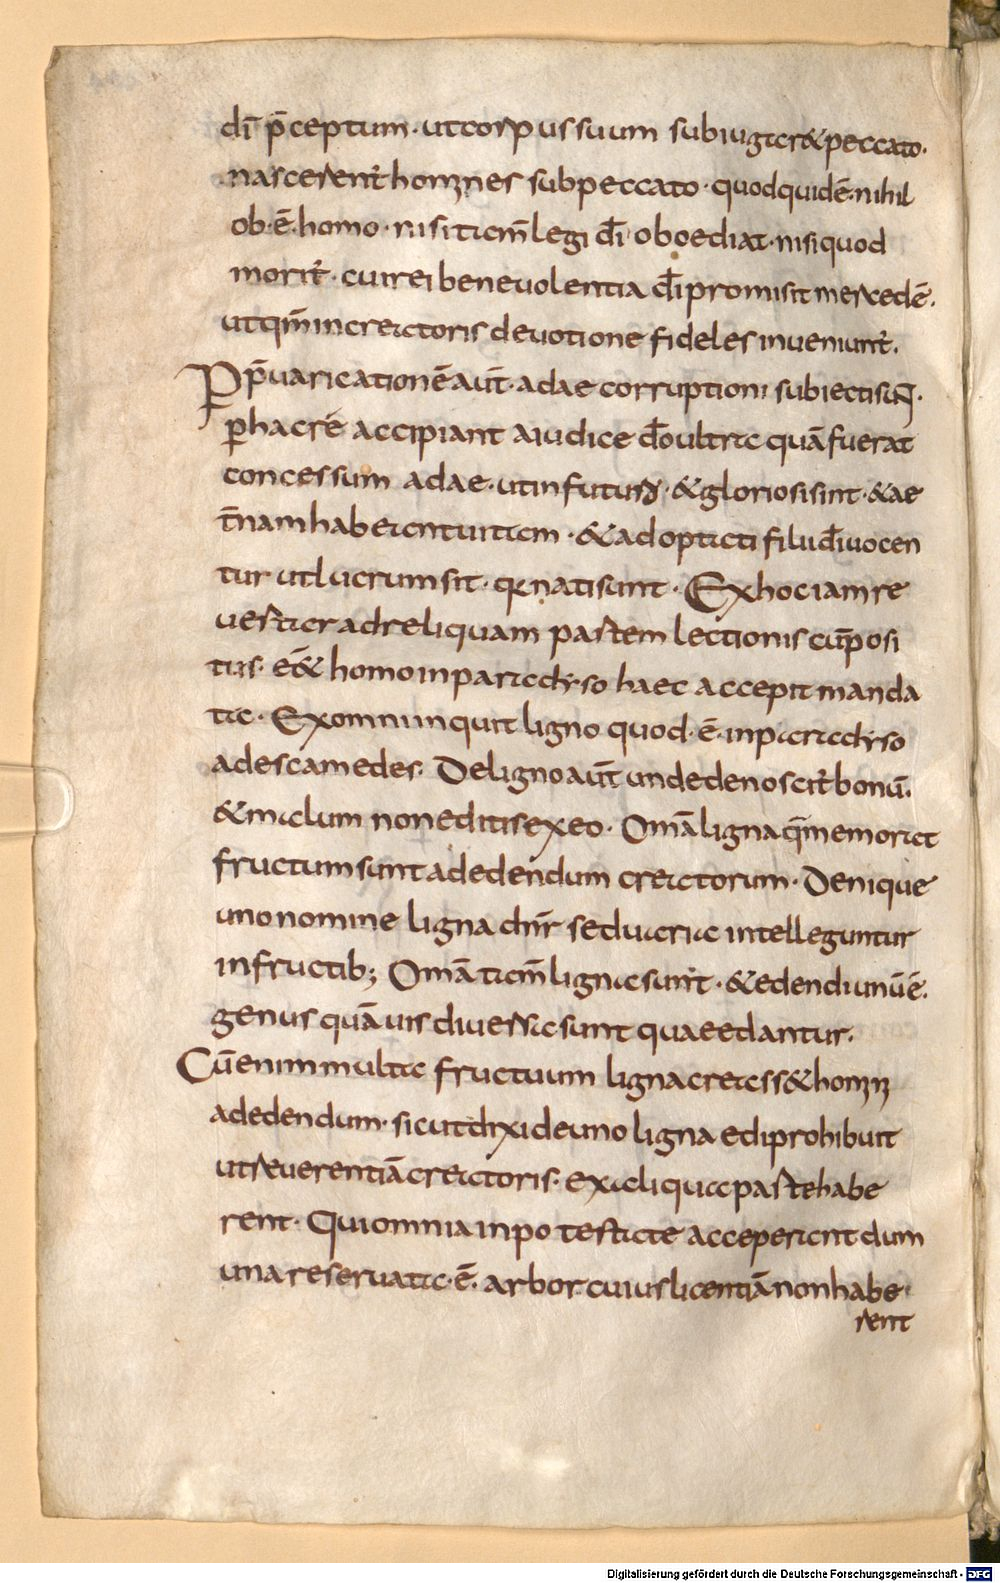 dī p̄ceptum · ut corpus suum subiugter& peccato ·
nascerent̄ homines sub peccato · quod quidē · nihil
ob · ē · homo · nisi tam̄ legi dī oboediat · nisi quod
morit̄ · cui rei beneuolentia dī promisit mercedē ·
ut qm̄ in creatoris deuotione fideles inueniunt̄ ·
P p̄uaricationē aut̄ · adae corruptioni subiecti sun̄ ·
p hac rē accipiant a iudice dō ultra quā fuerat
concessum adae · ut in futurū · & gloriosi sint · & ae
t̄nam habeant uitam · & adoptati filii dī uocen
tur ut lucrum sit · qđ nati sunt · Ex hoc iam re
uestar ad reliquam partem lectionis cūposi
tus · et̄ & homo in paradyso haec accepit manda
ta · Ex omni inquit ligno quod · ē · in paradyso
ad escam edes · De ligno aut̄ unde denoscit̄ bonū ·
& malum non editis ex eo · Om̄a ligna q̄ memorat
fructum sunt ad edendum creatorum · Denique
uno nomine ligna dnr̄ sed uaria intelleguntur
in fructib; Om̄a tam̄ ligna sunt · & edendi unū ē ·
genus quāuis diuersa sunt quae edantur ·
Cū enim multa fructuum ligna creass& homini
ad edendum · sicut dixi de uno ligna edi prohibuit
ut reuerentiā creatoris · ex aliqua parte habe
rent · Qui omnia in potestate acceperant dum
una reseruata · ē · arbor cuius licentiā non habe
rent
Digitalisierung gefördert durch die Deutsche Forschungsgemeinschaft - DFG